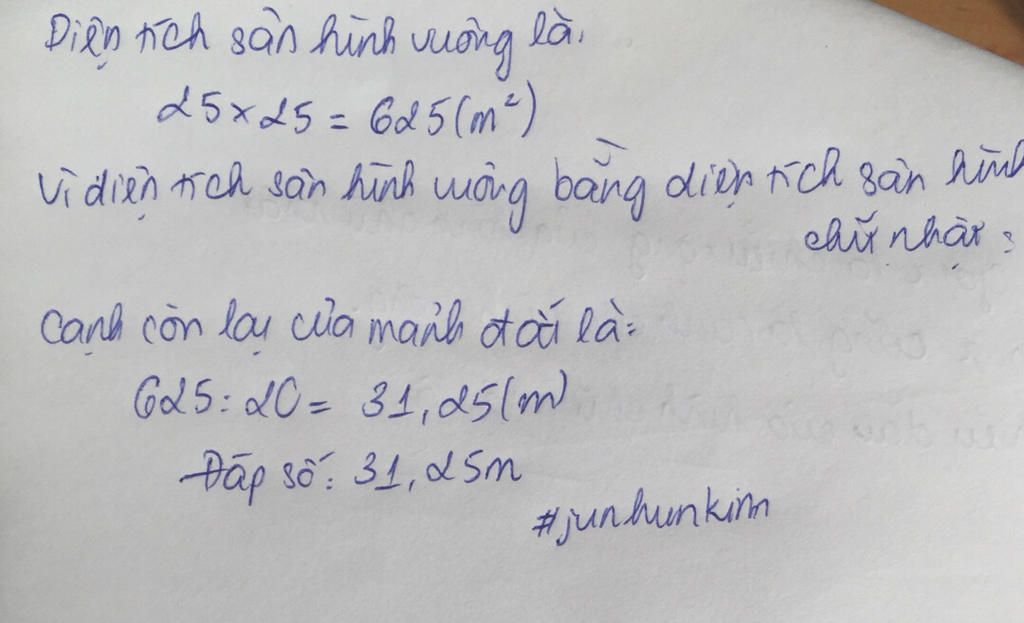 Diện tích sân hình vuông là:
25 x 25 = 625 (m²)
Vì diện tích sân hình vuông bằng diện tích sân hình
chữ nhật:
Cạnh còn lại của mảnh đất là:
625 : 20 = 31,25 (m)
Đáp số: 31,25m
#junhunkim